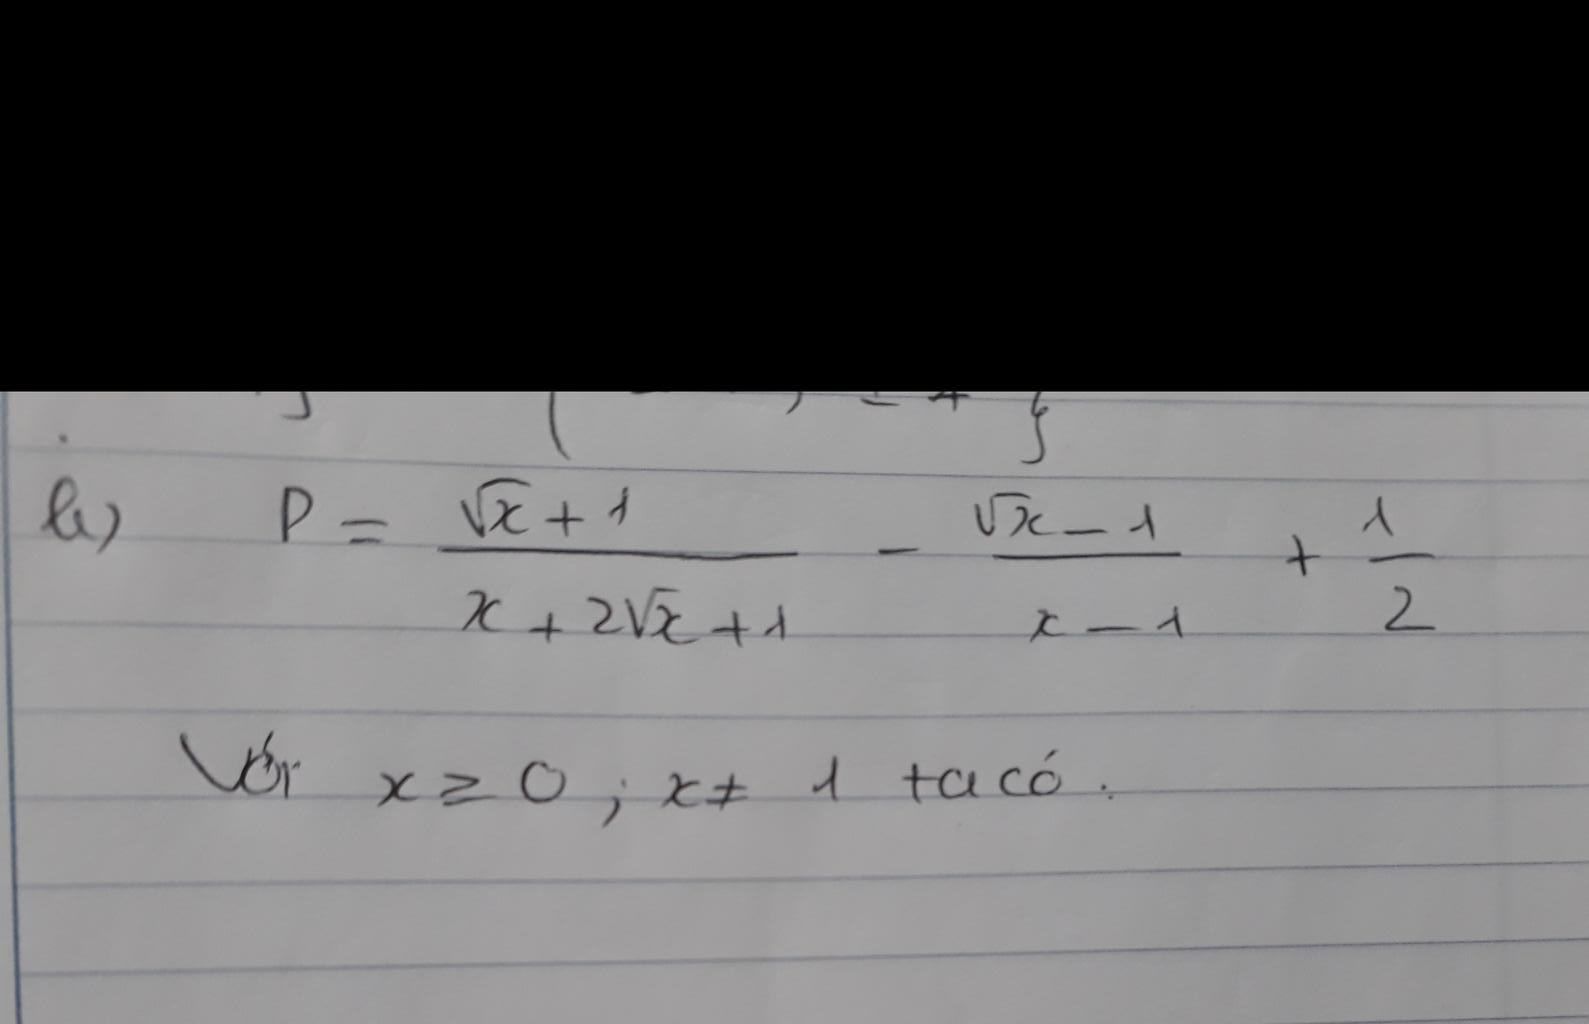 b) P = \frac{\sqrt{x} + 1}{x + 2\sqrt{x} + 1} - \frac{\sqrt{x} - 1}{x - 1} + \frac{1}{2}
Với x ≥ 0 ; x ≠ 1 ta có :